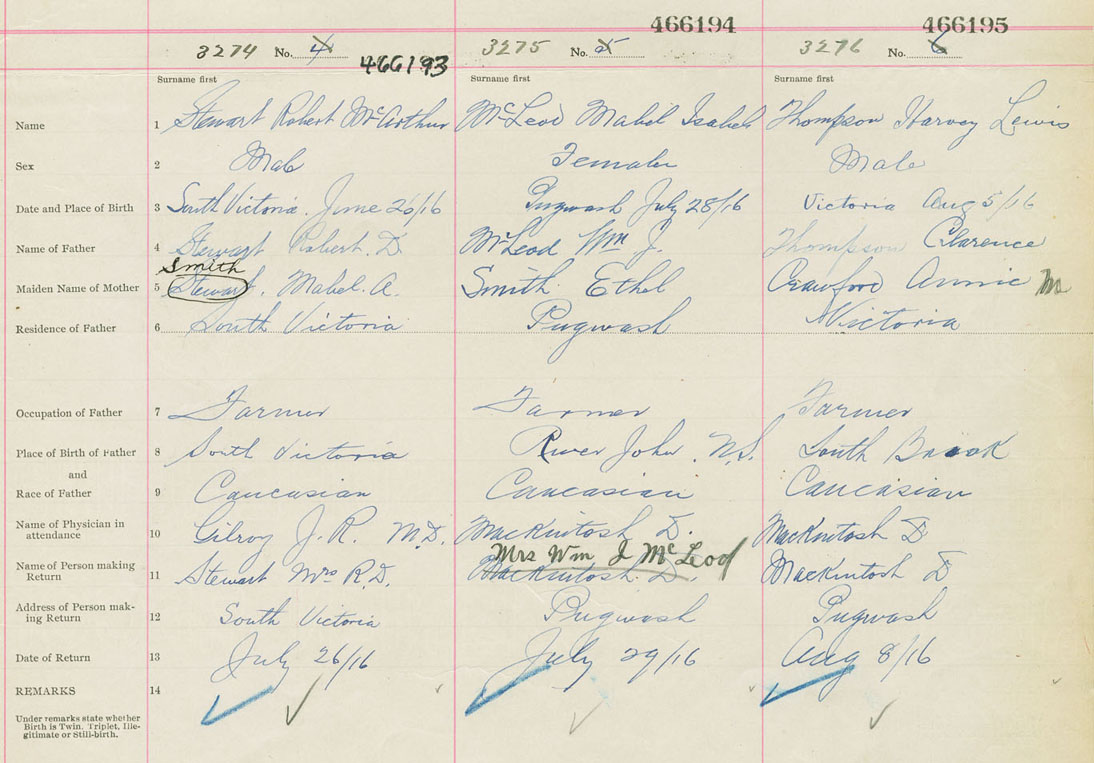 466194 466195
3274 No. 4 466193 3275 No. 5 3276 No. 6
Surname first Surname first Surname first
Name 1 Stewart Robert McArthur McLeod Mabel Isabel Thompson Harvey Lewis
Sex 2 Male Female Male
Date and Place of Birth 3 South Victoria. June 26/16 Pugwash July 28/16 Victoria Aug 5/16
Name of Father 4 Stewart Robert. D. McLeod Wm J. Thompson Clarence
Smith
Maiden Name of Mother 5 Stewart. Mabel. A. Smith Ethel Crawford Annie M
Residence of Father 6 South Victoria Pugwash Victoria
Occupation of Father 7 Farmer Farmer Farmer
Place of Birth of Father 8 South Victoria River John. N.S. South Brook
and
Race of Father 9 Caucasian Caucasian Caucasian
Name of Physician in
attendance 10 Gilroy J. R. M.D. Mackintosh D. Mackintosh D
Mrs Wm J McLeod
Name of Person making
Return 11 Stewart Mrs R.D. Mackintosh D. Mackintosh D
Address of Person mak-
ing Return 12 South Victoria Pugwash Pugwash
Date of Return 13 July 26/16 July 29/16 Aug 8/16
REMARKS 14
Under remarks state whether
Birth is Twin. Triplet, Ille-
gitimate or Still-birth.